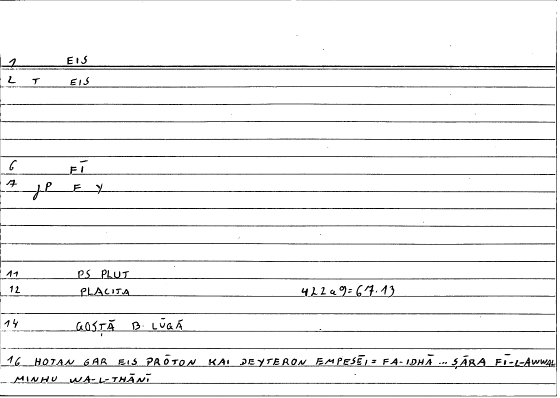 1 EIS
2 T EIS
6 FĪ
7 JP F Y
11 PS PLUT
12 PLACITA 422a9=67.13
14 QOSṬĀ B LŪQĀ
16 HOTAN GAR EIS PRŌTON KAI DEYTERON EMPESĒI = FA-IDHĀ ... ṢĀRA FĪ-L-AWWAL
MINHU WA-L-THĀNĪ